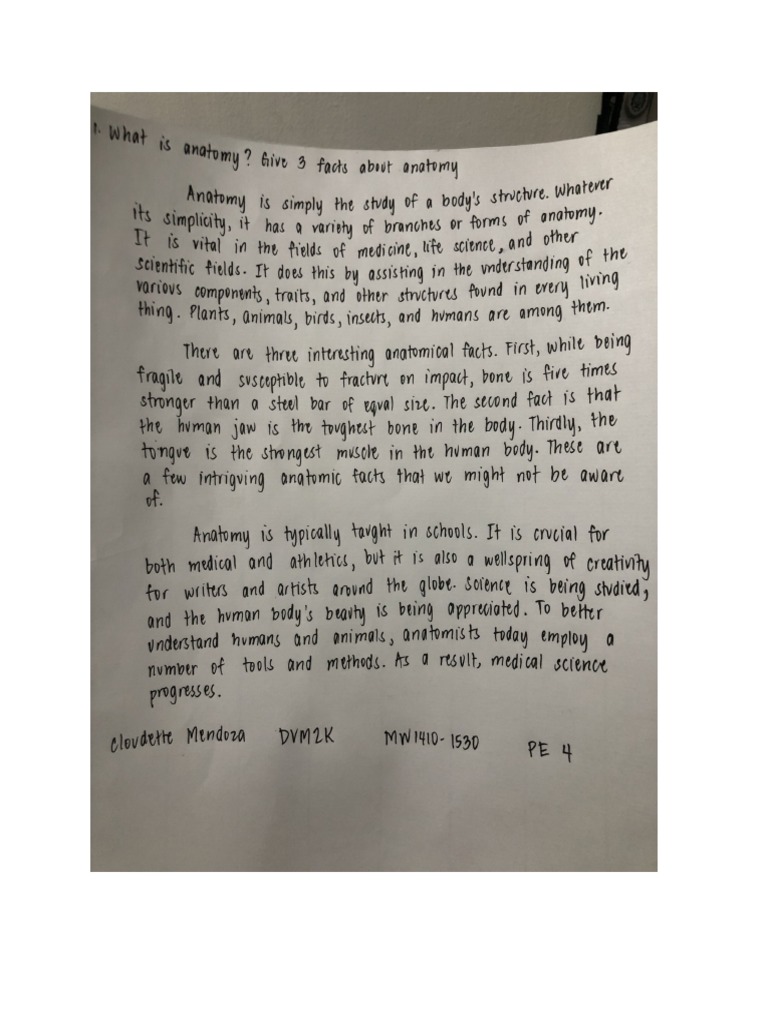 1. What is anatomy? Give 3 facts about anatomy
Anatomy is simply the study of a body's structure. Whatever
its simplicity, it has a variety of branches or forms of anatomy.
It is vital in the fields of medicine, life science, and other
scientific fields. It does this by assisting in the understanding of the
various components, traits, and other structures found in every living
thing. Plants, animals, birds, insects, and humans are among them.
There are three interesting anatomical facts. First, while being
fragile and susceptible to fracture on impact, bone is five times
stronger than a steel bar of equal size. The second fact is that
the human jaw is the toughest bone in the body. Thirdly, the
tongue is the strongest muscle in the human body. These are
a few intriguing anatomic facts that we might not be aware
of.
Anatomy is typically taught in schools. It is crucial for
both medical and athletics, but it is also a wellspring of creativity
for writers and artists around the globe. Science is being studied,
and the human body's beauty is being appreciated. To better
understand humans and animals, anatomists today employ a
number of tools and methods. As a result, medical science
progresses.
Cloudette Mendoza DVM2K MW1410-1530 PE 4